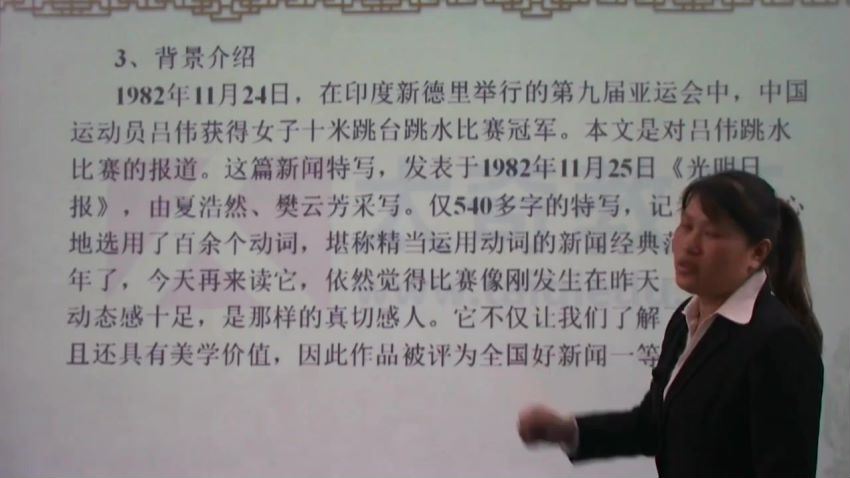 3、背景介绍
1982年11月24日，在印度新德里举行的第九届亚运会中，中国
运动员吕伟获得女子十米跳台跳水比赛冠军。本文是对吕伟跳水
比赛的报道。这篇新闻特写，发表于1982年11月25日《光明日
报》，由夏浩然、樊云芳采写。仅540多字的特写，记 心
地选用了百余个动词，堪称精当运用动词的新闻经典
年了，今天再来读它，依然觉得比赛像刚发生在昨天
动态感十足，是那样的真切感人。它不仅让我们了解
且还具有美学价值，因此作品被评为全国好新闻一等